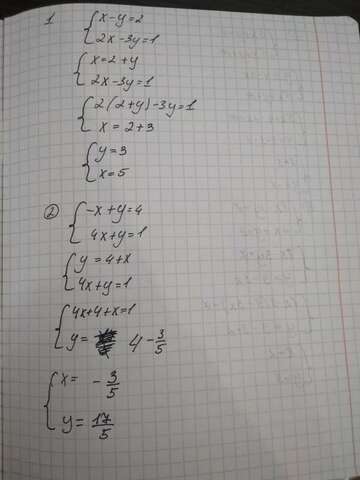 1
x-y=2
2x-3y=1
x=2+y
2x-3y=1
2(2+y)-3y=1
x=2+3
y=3
x=5
②
-x+y=4
4x+y=1
y=4+x
4x+y=1
4x+4+x=1
y= 4-3/5
x= -3/5
y= 17/5